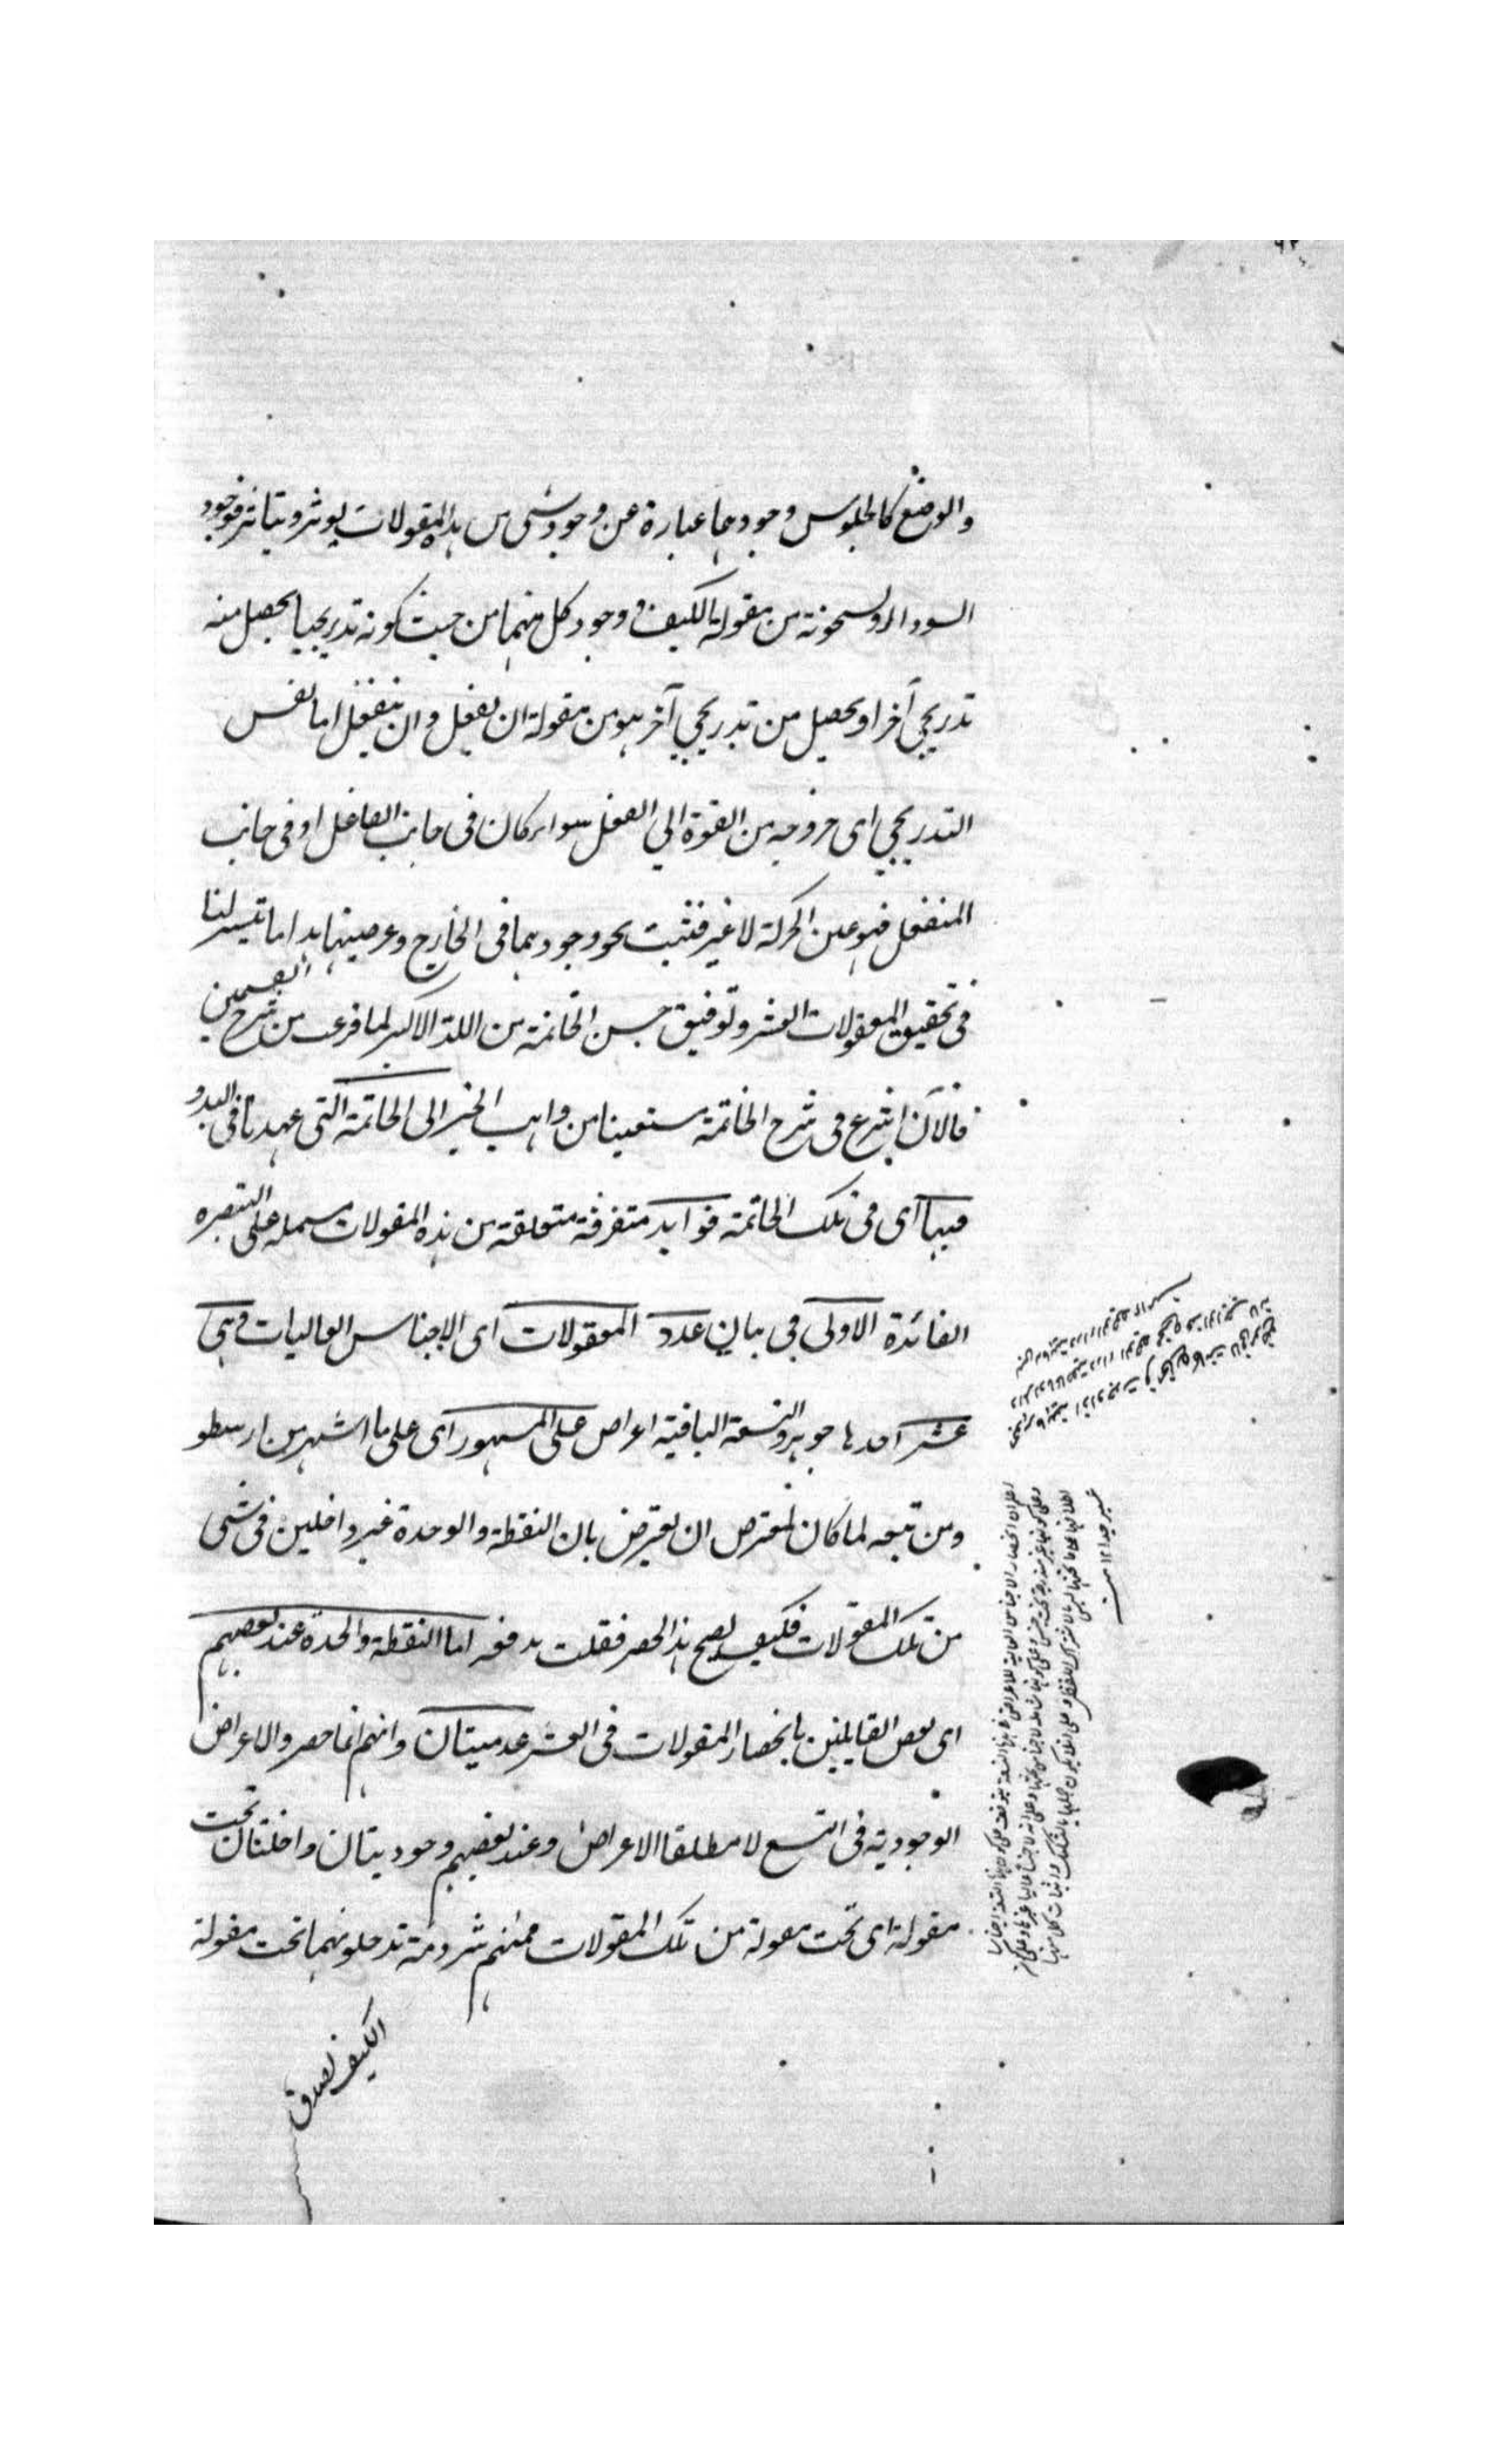 والوضع كالجلوس وجودهما عبارة عن وجود شئ من هذه المقولات يوثر ويتاثر فوجود
السواد والسخونة من مقولة الكيف ووجود كل منهما من حيث كونه تدريجيا يحصل منه
تدريجي آخر او يحصل من تدريجي آخر هو من مقولة ان يفعل وان ينفعل اما نفس
التدريجي اى خروجه من القوة الي الفعل سواء كان فى جانب الفاعل او فى جانب
المنفعل فهو عين الحركة لا غير فثبت نحو وجودهما فى الخارج وعرضيتهما هذا ما تيسر لنا
فى تحقيق المقولات العشر وتوفيق حسن الخاتمة من الله الاكبر لما فرغت من شرح القسمين
فالآن اشرع فى شرح الخاتمة مستعينا من واهب الخير الى الخاتمة التى عهدنا فى البدو
فيها اى فى تلك الخاتمة فوايد متفرقة متعلقة من هذه المقولات مشتملة على التبصره
الفائدة الاولى في بيان عدد المقولات اى الاجناس العاليات وهى
عشر احدها جوهر والتسعة الباقية اعراض على المشهور اى على ما اشتهر من ارسطو
ومن تبعه لما كان لمعترض ان يعترض بان النقطة والوحدة غير داخلين فى شئ
من تلك المقولات فكيف يصح هذا الحصر فقلت بدفعه اما النقطة والوحدة عند بعضهم
اى بعض القايلين بانحصار المقولات فى العشر عدميتان وانهم انما حصروا الاعراض
الوجودية فى التسع لا مطلقا الاعراض وعند بعضهم وجوديتان وداخلتان تحت
مقولة اى تحت مقولة من تلك المقولات فمنهم شرذمة تدخلونهما تحت مقولة
الكيف لصدق
اعلم ان انحصار الاجناس العالية للاعراض فى هذه التسعة يتوقف على كون هذه التسعة اجناسا